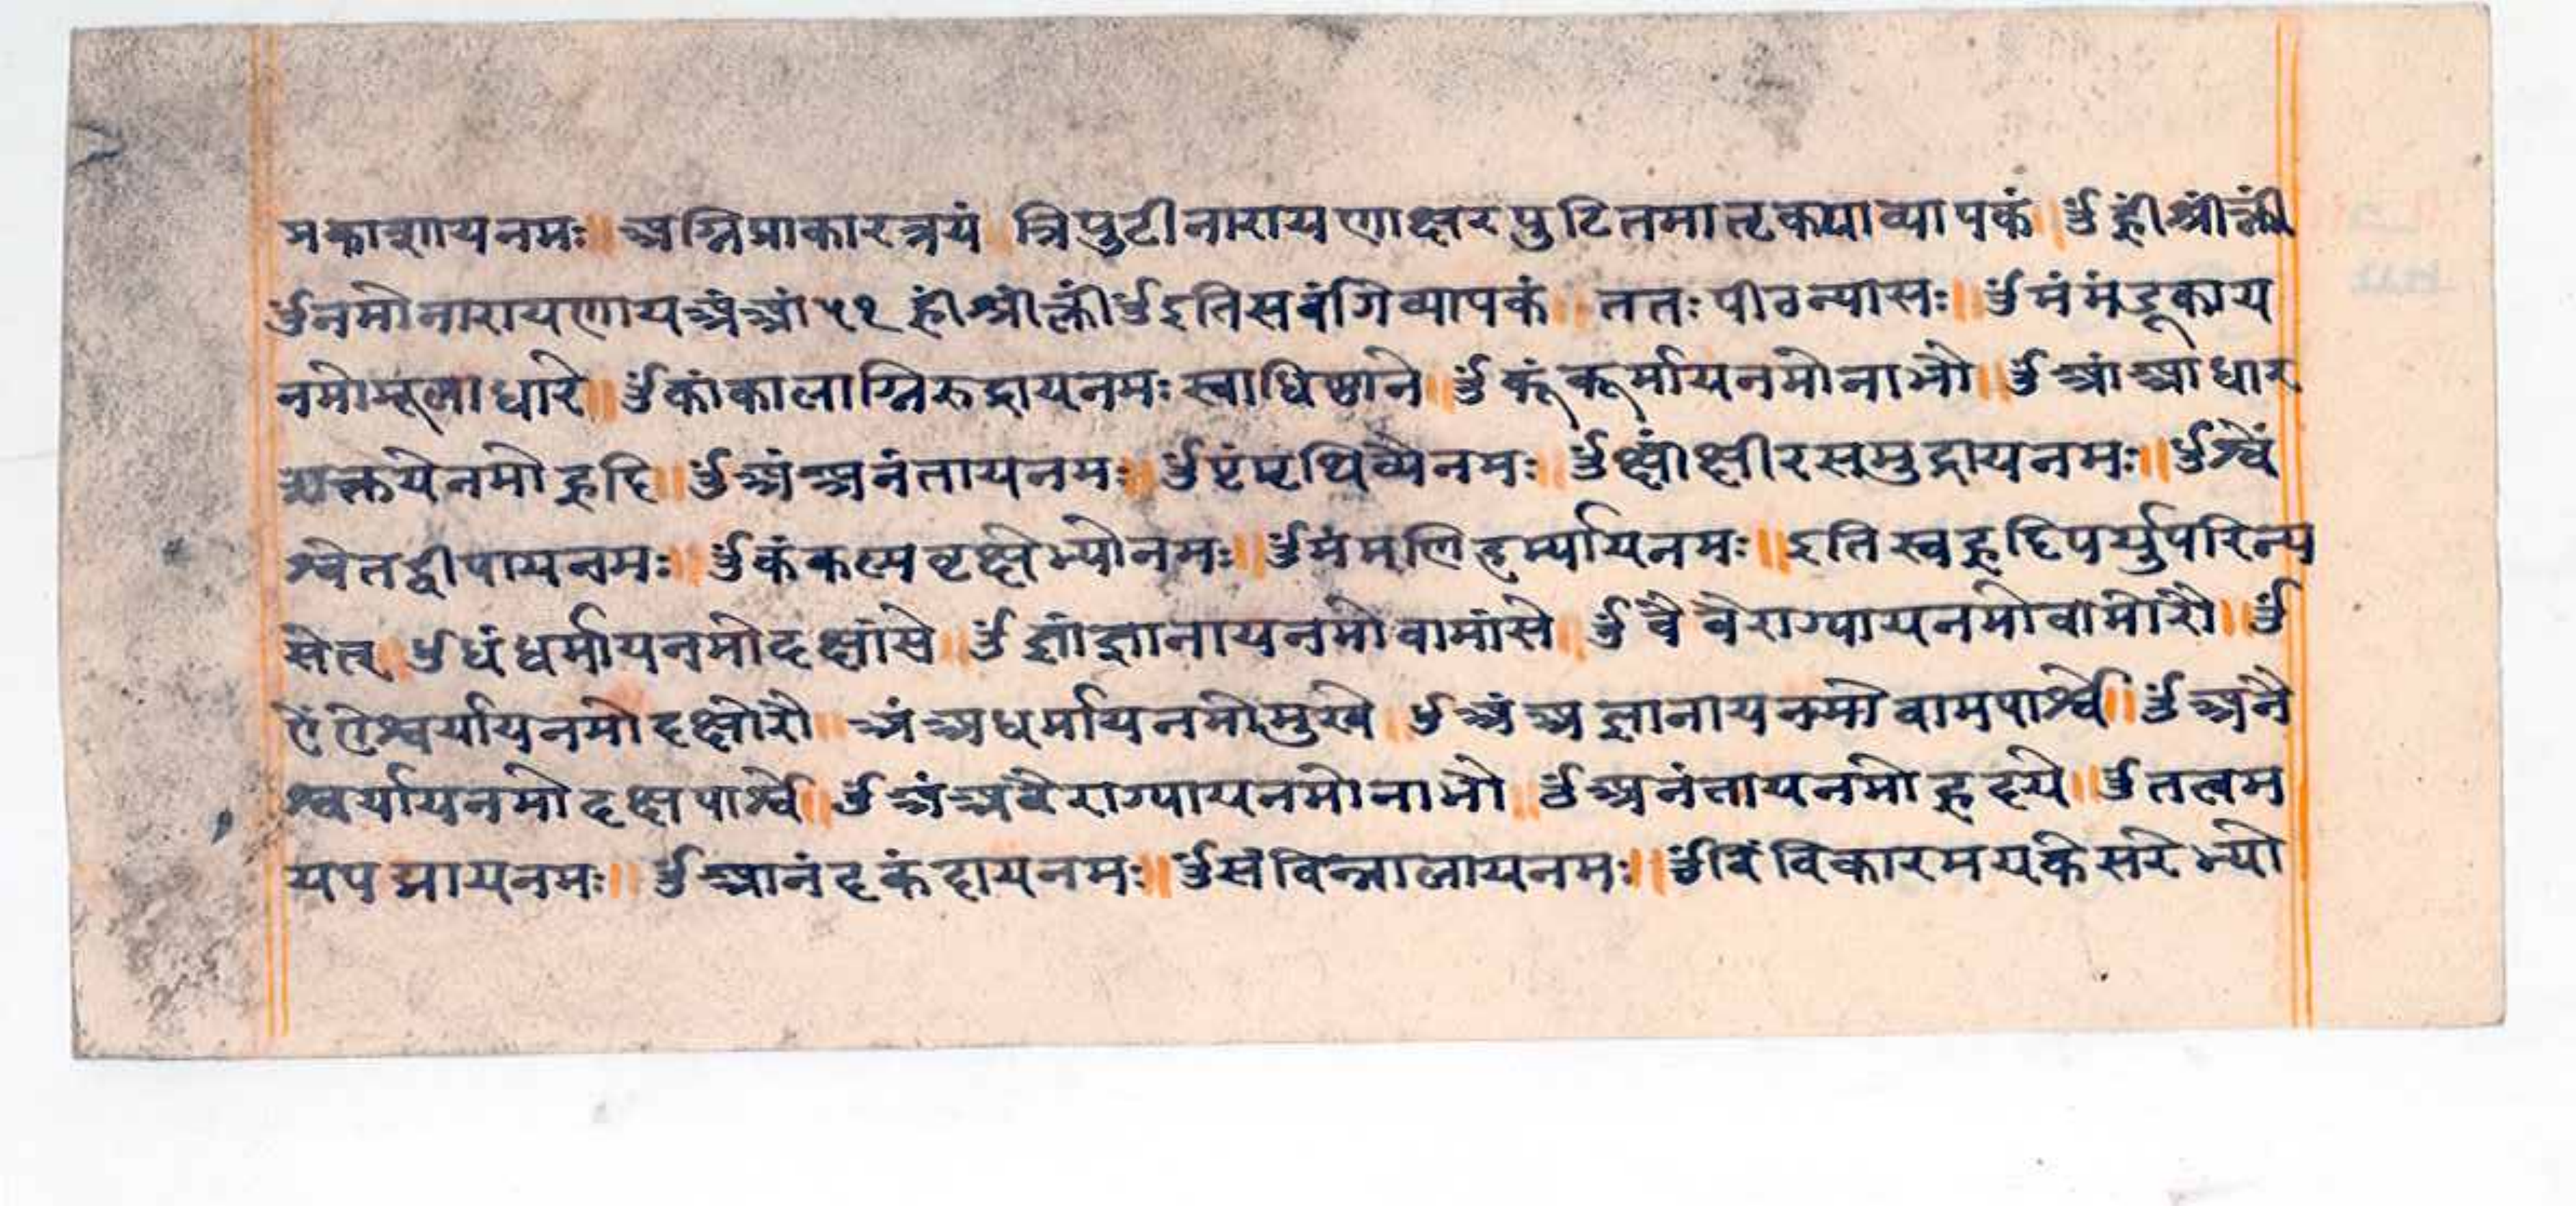 प्रकाशाय नमः॥ अग्निप्राकारत्रयं त्रिपुटीनारायणाक्षरपुटितमातृकया व्यापकं॥ ॐ ह्रीं श्रीं क्लीं
ॐ नमो नारायणाय अं आं ५१ ह्रीं श्रीं क्लीं ॐ इति सर्वांगे व्यापकं॥ ततः पीठन्यासः॥ ॐ मं मंडूकाय
नमो मूलाधारे॥ ॐ कां कालाग्निरुद्राय नमः स्वाधिष्ठाने॥ ॐ कूं कूर्माय नमो नाभौ॥ ॐ आं आधार
शक्तये नमो हृदि॥ ॐ अं अनंताय नमः॥ ॐ पृं पृथिव्यै नमः॥ ॐ क्षीं क्षीरसमुद्राय नमः॥ ॐ श्वें
श्वेतद्वीपाय नमः॥ ॐ कं कल्पवृक्षेभ्यो नमः॥ ॐ मं मणिहर्म्याय नमः॥ इति स्वहृदि पर्युपरि न्य
सेत् ॐ धं धर्माय नमो दक्षांसे॥ ॐ ज्ञां ज्ञानाय नमो वामांसे॥ ॐ वै वैराग्याय नमो वामोरौ॥ ॐ
ऐं ऐश्वर्याय नमो दक्षोरौ॥ अं अधर्माय नमो मुखे॥ ॐ अं अज्ञानाय नमो वामपार्श्वे॥ ॐ अनै
श्वर्याय नमो दक्षपार्श्वे॥ ॐ अं अवैराग्याय नमो नाभौ॥ ॐ अनंताय नमो हृदये॥ ॐ तत्वम
यपद्माय नमः॥ ॐ आनंदकंदाय नमः॥ ॐ संविन्नालाय नमः॥ ॐ विं विकारमयकेसरेभ्यो